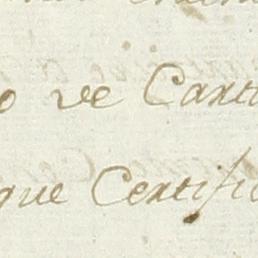 o de Cart
que Certifi